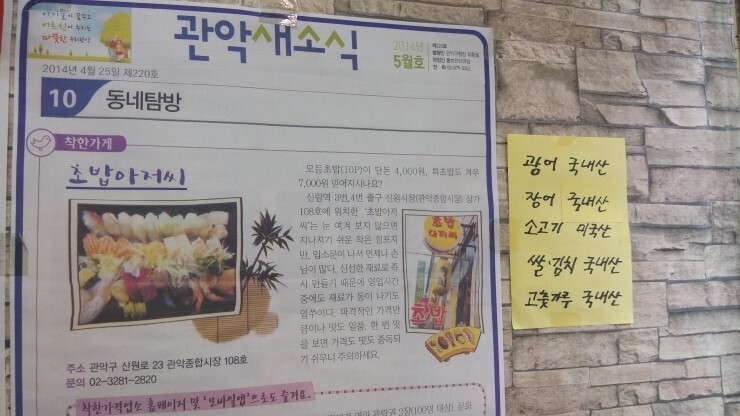 아이들이 꿈꾸고
어르신이 누리는
따뜻한 우리관악
관악새소식
2014년
5월호
2014년 4월 25일 제220호
10 동네탐방
착한가게
초밥아저씨
모듬초밥(10P)이 단돈 4,000원, 특초밥도 겨우
7,000원 믿어지시나요?
신림역 3번, 4번 출구 신원시장(관악종합시장) 상가
108호에 위치한 '초밥아저
씨'는 눈 여겨 보지 않으면
지나치기 쉬운 작은 점포지
만, 입소문이 나서 언제나 손
님이 많다. 신선한 재료로 즉
시 만들기 때문에 영업시간
중에도 재료가 동이 나기도
일쑤이다. 파격적인 가격만
큼이나 맛도 일품. 한 번 맛
을 보면 가격도 맛도 중독되
기 쉬우니 주의하세요.
초밥
아저씨
초밥
주소 관악구 신원로 23 관악종합시장 108호
문의 02-3281-2820
착한가격업소 홈페이지 및 '모바일앱'으로도 즐겨요.
광어 국내산
장어 국내산
소고기 미국산
쌀·김치 국내산
고춧가루 국내산